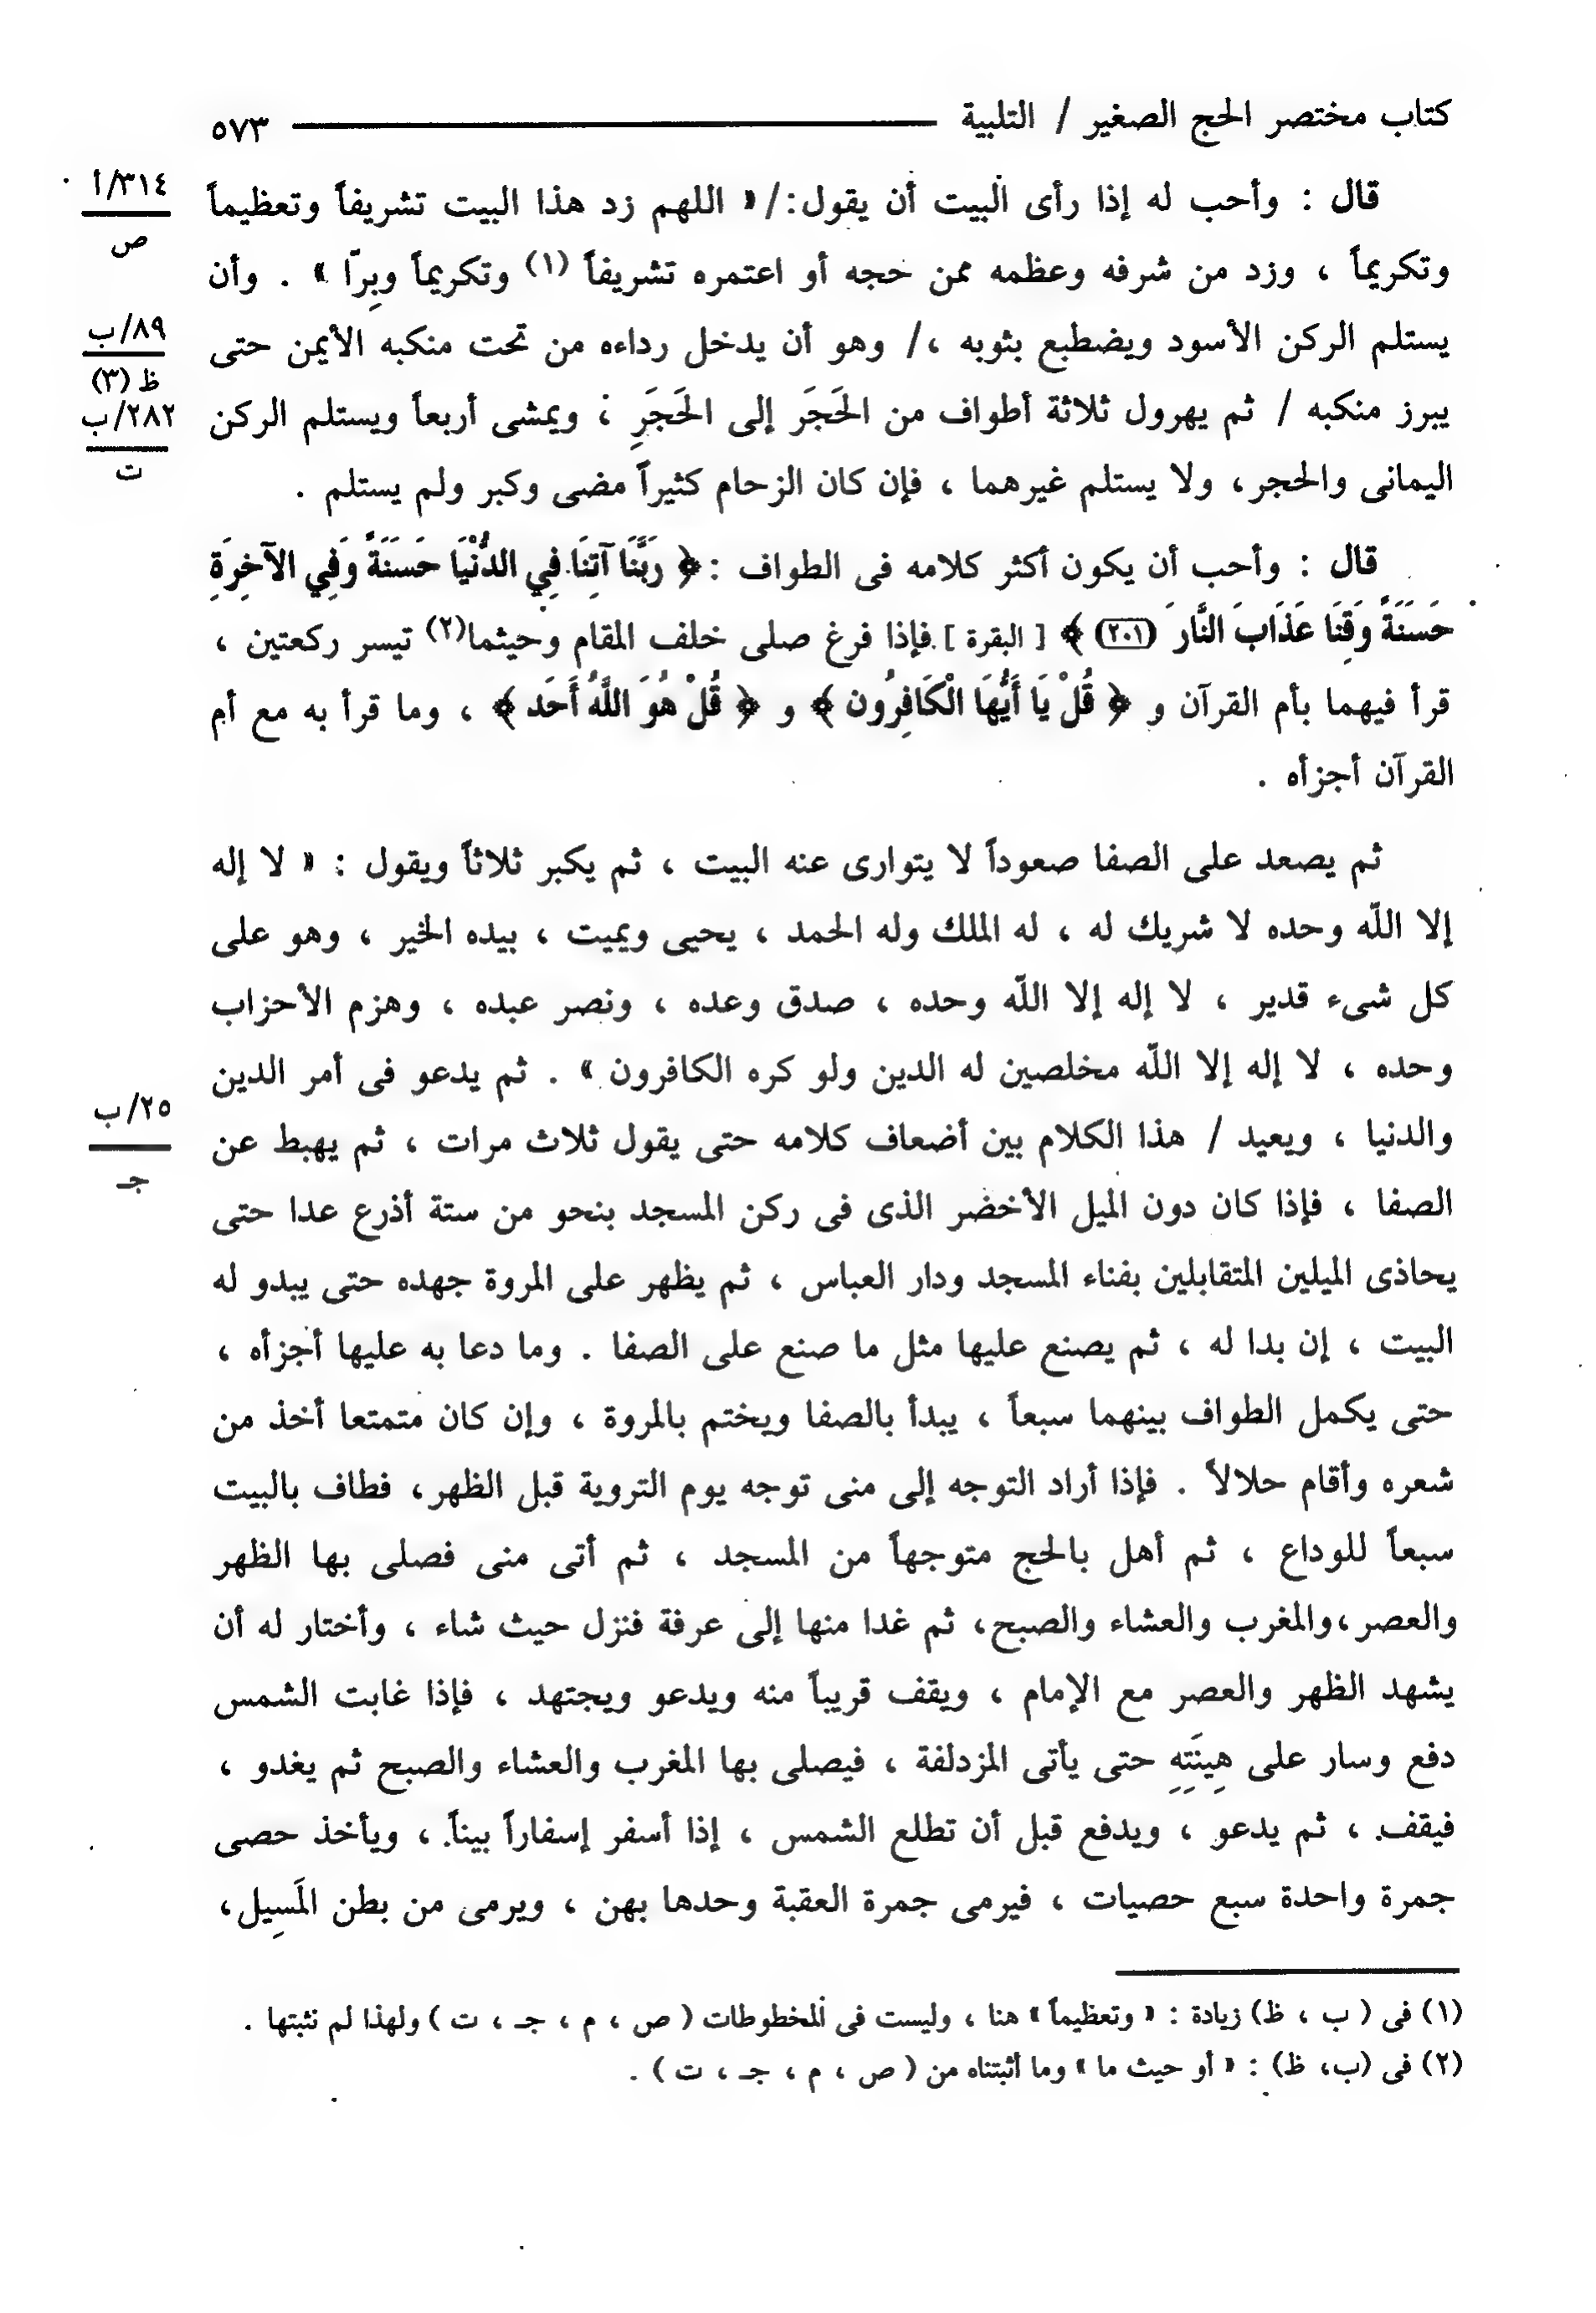 كتاب مختصر الحج الصغير / التلبية ٥٧٣
قال : وأحب له إذا رأى البيت أن يقول:/« اللهم زد هذا البيت تشريفاً وتعظيماً
٣١٤/أ
ص
وتكريماً ، وزد من شرفه وعظمه ممن حجه أو اعتمره تشريفاً (١) وتكريماً وبِرّا » . وأن
يستلم الركن الأسود ويضطبع بثوبه ،/ وهو أن يدخل رداءه من تحت منكبه الأيمن حتى
٨٩/ب
ظ (٣)
يبرز منكبه / ثم يهرول ثلاثة أطواف من الحَجَر إلى الحَجَرِ ، ويمشى أربعاً ويستلم الركن
٢٨٢/ب
ت
اليمانى والحجر، ولا يستلم غيرهما ، فإن كان الزحام كثيراً مضى وكبر ولم يستلم .
قال : وأحب أن يكون أكثر كلامه فى الطواف :﴿ رَبَّنَا آتِنَا فِي الدُّنْيَا حَسَنَةً وَفِي الآخِرَةِ
حَسَنَةً وَقِنَا عَذَابَ النَّارِ (٢٠١) ﴾ [ البقرة ] فإذا فرغ صلى خلف المقام وحيثما(٢) تيسر ركعتين ،
قرأ فيهما بأم القرآن و ﴿ قُلْ يَا أَيُّهَا الْكَافِرُون ﴾ و ﴿ قُلْ هُوَ اللَّهُ أَحَد ﴾ ، وما قرأ به مع أم
القرآن أجزأه .
ثم يصعد على الصفا صعوداً لا يتوارى عنه البيت ، ثم يكبر ثلاثاً ويقول : « لا إله
إلا اللّه وحده لا شريك له ، له الملك وله الحمد ، يحيى ويميت ، بيده الخير ، وهو على
كل شىء قدير ، لا إله إلا اللّه وحده ، صدق وعده ، ونصر عبده ، وهزم الأحزاب
وحده ، لا إله إلا اللّه مخلصين له الدين ولو كره الكافرون » . ثم يدعو فى أمر الدين
والدنيا ، ويعيد / هذا الكلام بين أضعاف كلامه حتى يقول ثلاث مرات ، ثم يهبط عن
٢٥/ب
جـ
الصفا ، فإذا كان دون الميل الأخضر الذى فى ركن المسجد بنحو من ستة أذرع عدا حتى
يحاذى الميلين المتقابلين بفناء المسجد ودار العباس ، ثم يظهر على المروة جهده حتى يبدو له
البيت ، إن بدا له ، ثم يصنع عليها مثل ما صنع على الصفا . وما دعا به عليها أجزأه ،
حتى يكمل الطواف بينهما سبعاً ، يبدأ بالصفا ويختم بالمروة ، وإن كان متمتعا أخذ من
شعره وأقام حلالاً . فإذا أراد التوجه إلى منى توجه يوم التروية قبل الظهر، فطاف بالبيت
سبعاً للوداع ، ثم أهل بالحج متوجهاً من المسجد ، ثم أتى منى فصلى بها الظهر
والعصر،والمغرب والعشاء والصبح، ثم غدا منها إلى عرفة فنزل حيث شاء ، وأختار له أن
يشهد الظهر والعصر مع الإمام ، ويقف قريباً منه ويدعو ويجتهد ، فإذا غابت الشمس
دفع وسار على هِينَتِهِ حتى يأتى المزدلفة ، فيصلى بها المغرب والعشاء والصبح ثم يغدو ،
فيقف ، ثم يدعو ، ويدفع قبل أن تطلع الشمس ، إذا أسفر إسفاراً بيناً ، ويأخذ حصى
جمرة واحدة سبع حصيات ، فيرمى جمرة العقبة وحدها بهن ، ويرمى من بطن المَسِيل،
(١) فى ( ب ، ظ) زيادة : « وتعظيماً » هنا ، وليست فى المخطوطات ( ص ، م ، جـ ، ت ) ولهذا لم نثبتها .
(٢) فى (ب، ظ) : « أو حيث ما » وما أثبتناه من ( ص ، م ، جـ ، ت ) .